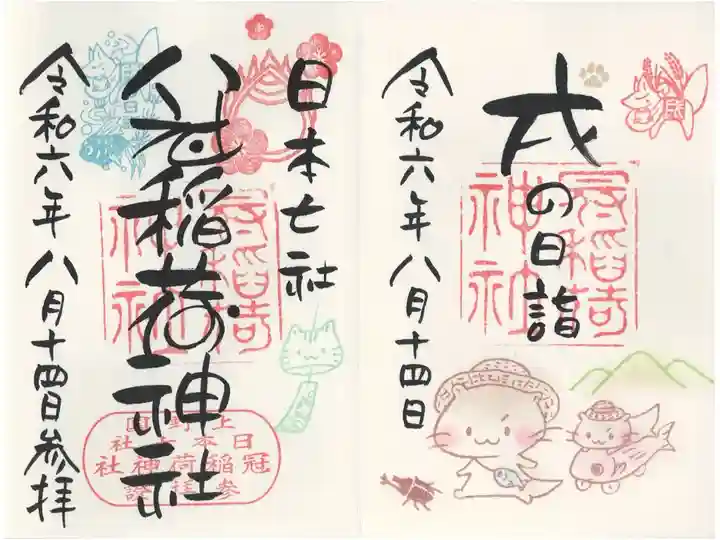 日本七社
冠稲荷神社
令和六年八月十四日参拝
冠稲荷
神社
上野国
日本七社
冠稲荷神社
参拝證
戌の日詣
令和六年八月十四日
冠稲荷
神社